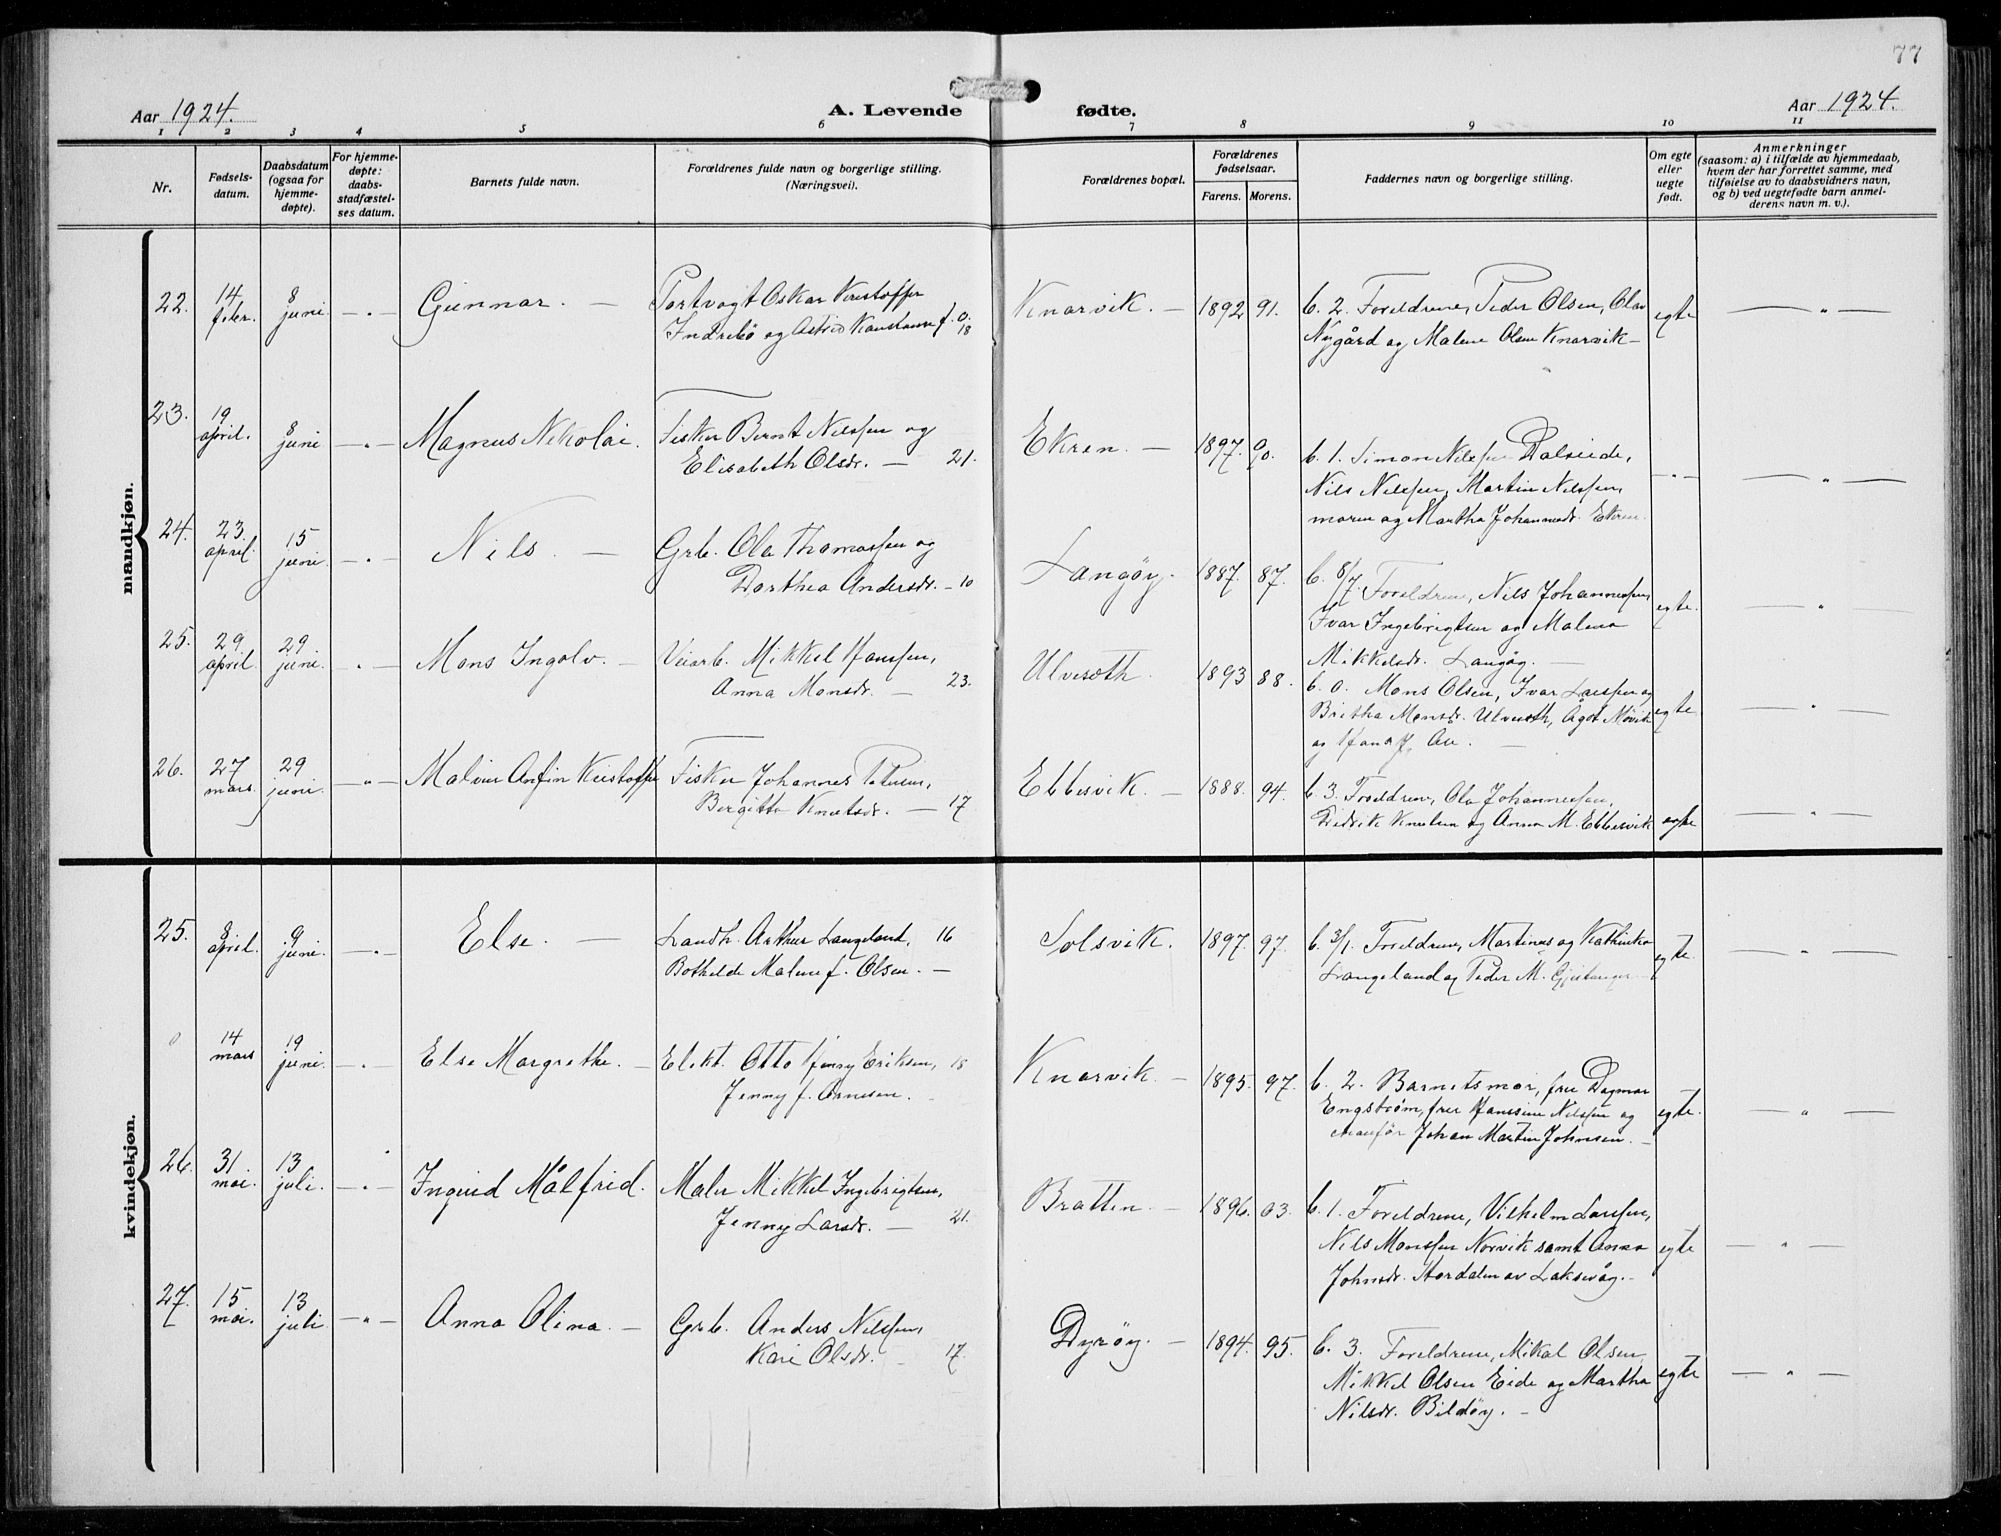 77
Aar 1924. A. Levende fødte. Aar 1924.
1 2 3 4 5 6 7 8 9 10 11
Nr.
Fødsels-
datum.
Daabsdatum
(ogsaa for
hjemme-
døpte).
For hjemme-
døpte:
daabs-
stadfæstel-
ses datum.
Barnets fulde navn.
Forældrenes fulde navn og borgerlige stilling.
(Næringsvei).
Forældrenes bopæl.
Forældrenes
fødselsaar.
Farens. Morens.
Faddernes navn og borgerlige stilling.
Om egte
eller
uegte
født.
Anmerkninger
(saasom: a) i tilfælde av hjemmedaab,
hvem der har forrettet samme, med
tilføielse av to daabsvidners navn,
og b) ved uegtefødte barn anmel-
derens navn m. v.).
mandkjøn.
22. 14 febr. 8 juni — " — Gunnar. —
Portvagt Oskar Kristoffer
Indrebö og Astrid Konstanse f. O. 18
Knarvik. — 1892 91.
b. 2. Foreldrene, Peder Olsen, Olav
Nygård og Malene Olsen Knarvik —
egte — " —
23. 19 april. 8 juni — " — Magnus Nikolai.
Fisker Bernt Nilssen og
Elisabeth Olsdr. — 21.
Ekren. — 1897. 90.
b. 1. Simon Nilssen Dalseide,
Nils Nilssen, Martin Nilssen,
moren og Martha Johannesdr. Ekren.
— " — — " —
24. 23. april. 15 juni — " — Nils. —
Grb. Ola Thomassen og
Dorthea Andersdr. — 10
Langöy. 1887. 87.
b. 8/7. Foreldrene, Nils Johannessen,
Ivar Ingebrigtsen og Malena
Mikkelsdr. Langöy. —
egte. — " —
25. 29. april 29 juni. — " — Mons Ingolv. —
Veiarb. Mikkel Hanssen,
Anna Monsdr. — 23.
Ulveseth. 1893 88.
b. 0. Mons Olsen, Ivar Larssen og
Britha Monsdr. Ulveseth, Ågot Növik
og Hans J.
egte — " —
26. 27 mars. 29 juni. — " — Malvin Anfin Kristoffer
Fisker Johannes Petersen,
Bergitta Knutsdr. — 17.
Ebbesvik. — 1888. 94.
b. 3. Foreldrene, Ola Johannessen,
Didrik Knutsen og Anna M. Ebbesvik
egte — " —
kvindekjøn.
25. 8 april. 9 juni — " — Else. —
Landh. Arthur Langeland, 16
Bothilde Malene f. Olsen. —
Solsvik. 1897. 97.
b. 3/1. Foreldrene, Martines og Kathinka
Langeland og Peder M.
egte. — " —
0 14 mars 19 juni. — " — Else Margrethe. —
Elekt. Otto Henry Eriksen, 18
Jenny f. Arnesen.
Knarvik. — 1895. 97.
b. 2. Barnets mor, fru Dagmar
Engström, fru Hanssine Nilssen og
Johan Martin Johnsen. —
egte. — " —
26. 31 mai. 13 juli. — " — Ingrid Målfrid.
Maler Mikkel Ingebrigtsen,
Jenny Larsdr. — 21.
Bratten. — 1896. 03.
b. 1. Foreldrene, Vilhelm Larssen,
Nils Monssen Norvik samt Anna
Johnsdr. Stordalen av Laksevåg. —
egte — " —
27. 15 mai. 13 juli — " — Anna Olina. —
Grb. Anders Nilssen,
Kari Olsdr. — 17.
Dyröy. — 1894. 95.
b. 3. Foreldrene, Mikal Olsen,
Mikkel Olsen Eide og Martha
Nilsdr. Bildöy. —
egte — " —